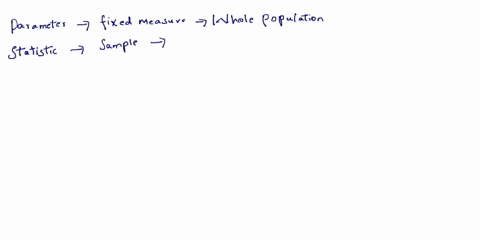 Parameter → fixed measure → Whole population
Statistic → Sample →